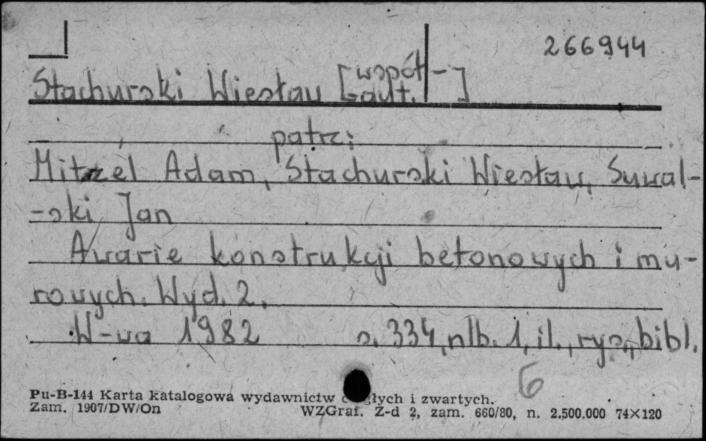 266944
Stachurski Wiesław [współ-aut.]
patrz:
Mitzel Adam, Stachurski Wiesław, Suwal-
-ski Jan
Awarie konstrukcji betonowych i mu-
rowych. Wyd. 2.
W-wa 1982 s. 334, nlb. 1, il., rys., bibl.
6
Pu-B-144 Karta katalogowa wydawnictw ciągłych i zwartych.
Zam. 1907/DW/On WZGraf. Z-d 2, zam. 660/80, n. 2.500.000 74×120